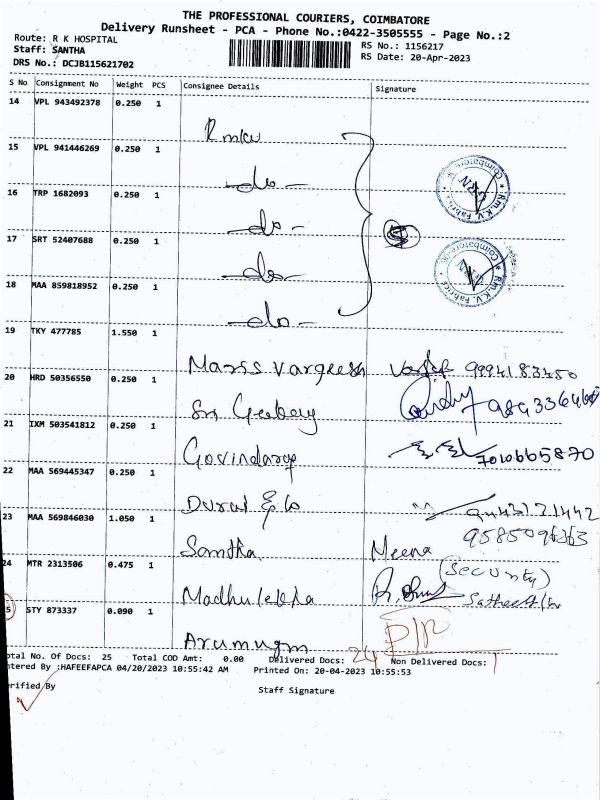 THE PROFESSIONAL COURIERS, COIMBATORE
Delivery Runsheet - PCA - Phone No.:0422-3505555 - Page No.:2
Route: R K HOSPITAL
Staff: SANTHA
DRS No.: DCJB115621702
RS No.: 1156217
RS Date: 20-Apr-2023
S No Consignment No Weight PCS Consignee Details Signature
14 VPL 943492378 0.250 1
Rmkv
15 VPL 941446269 0.250 1
-do-
16 TRP 1682093 0.250 1
-do-
17 SRT 52407688 0.250 1
-do-
18 MAA 859818952 0.250 1
-do-
19 TKY 477785 1.550 1
Mariss Vargeesh 9994183450
20 HRD 50356550 0.250 1
21 IXM 503541812 0.250 1
Govindaraj 7010665870
22 MAA 569445347 0.250 1
Durai & Co
23 MAA 569846030 1.050 1
Santha Meena
24 MTR 2313506 0.475 1
(Security)
Madhulekha
25 STY 873337 0.090 1
Arumugm
Total No. Of Docs: 25 Total COD Amt: 0.00 Delivered Docs: 24 Non Delivered Docs: 1
ntered By :HAFEEFAPCA 04/20/2023 10:55:42 AM Printed On: 20-04-2023 10:55:53
erified By Staff Signature